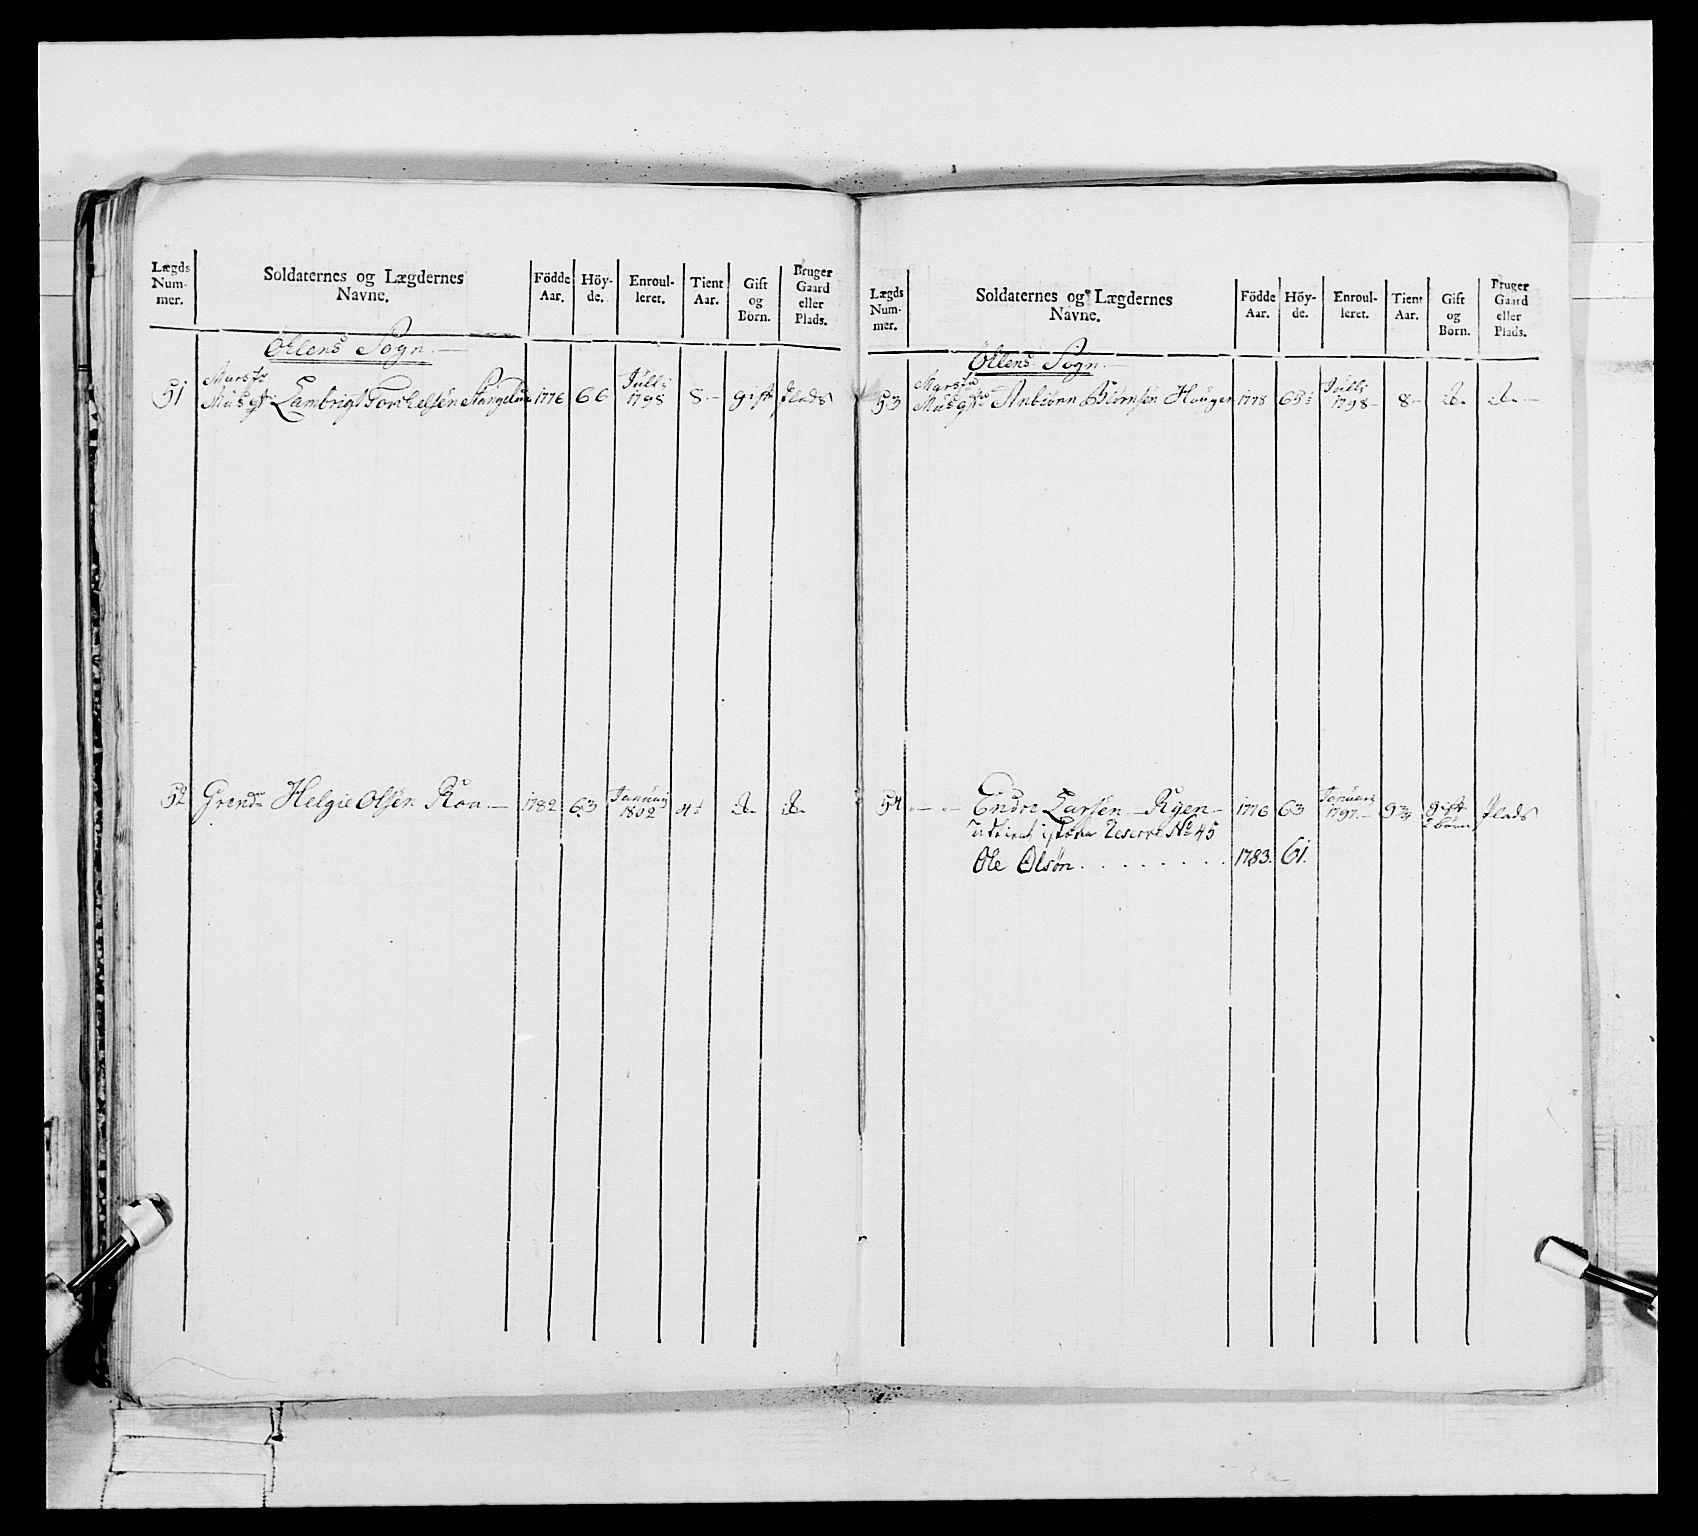 Lægds Num- mer.
Soldaternes og Lægdernes Navne.
Födde Aar.
Höy- de.
Enroul- leret.
Tient Aar.
Gift og Börn.
Bruger Gaard eller Plads.
Öllens Sogn
51 Musqt: Lambrigt Torchelsen 1776 66 Julli 1798 8 gift Plads
52 Grend: Helgie Olsen Roa 1782 63 Januarij 1802 4 do do
Lægds Num- mer.
Soldaternes og Lægdernes Navne.
Födde Aar.
Höy- de.
Enroul- leret.
Tient Aar.
Gift og Börn.
Bruger Gaard eller Plads.
Öllens Sogn
53 Musqt: Anbiörn Biörnsen Hougen 1778 Julli 1798 8 do do
54 Endre Larsen Ryen 1776 63 Januarij 1797 9 gift 2 börn Plads
Reserve No 45
Ole Olsön 1783. 61.